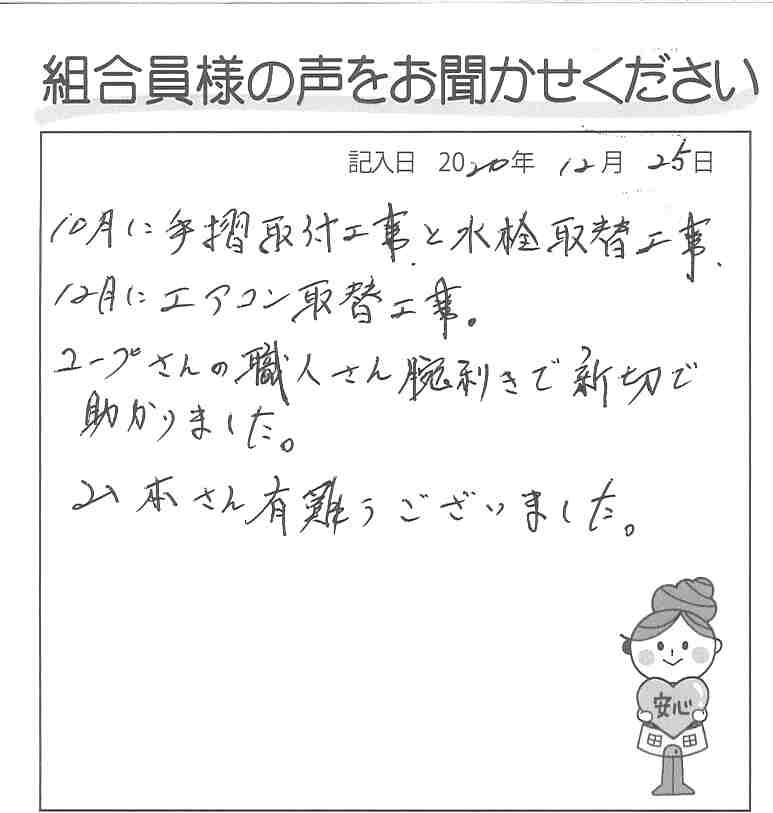 組合員様の声をお聞かせください
記入日 2020年 12月 25日
10月に手摺取付工事と水栓取替工事、
12月にエアコン取替工事。
コープさんの職人さん腕利きで新切で
助かりました。
山本さん有難うございました。
安心